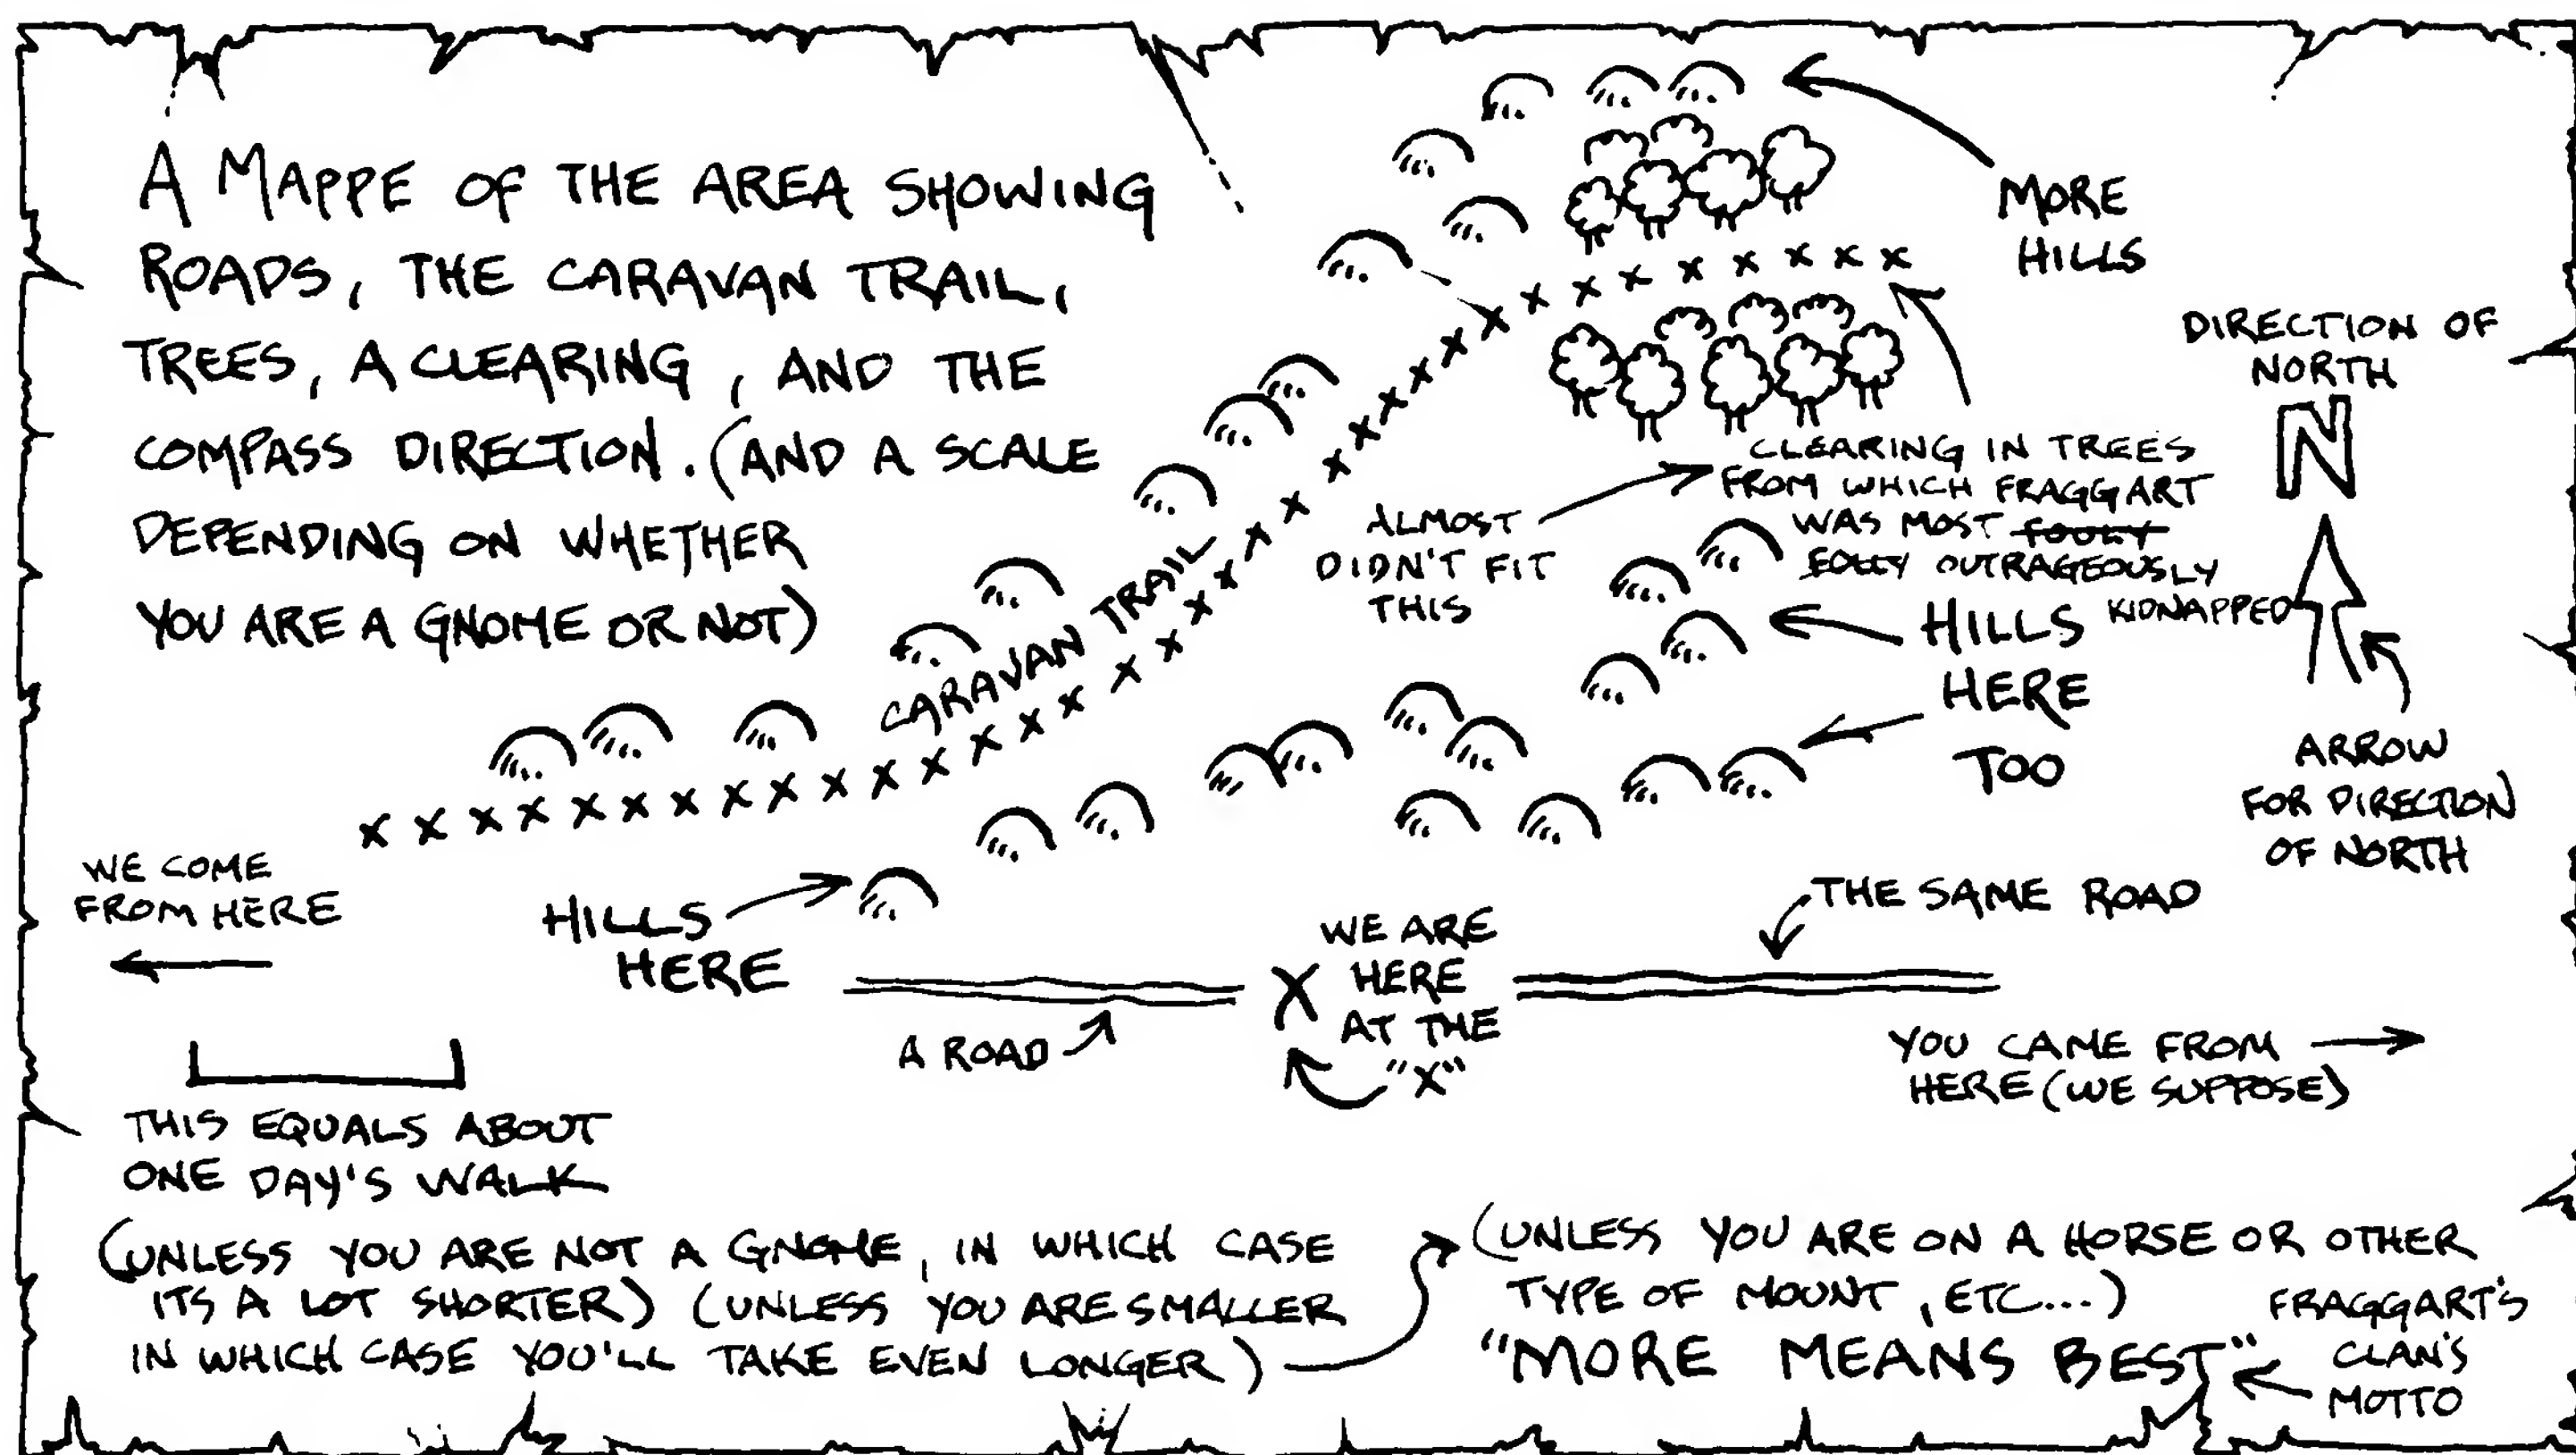 A MAPPE OF THE AREA SHOWING
ROADS, THE CARAVAN TRAIL,
TREES, A CLEARING, AND THE
COMPASS DIRECTION. (AND A SCALE
DEPENDING ON WHETHER
YOU ARE A GNOME OR NOT)
MORE
HILLS
DIRECTION OF
NORTH
N
CLEARING IN TREES
FROM WHICH FRAGGART
WAS MOST FOOLY
FOLLY OUTRAGEOUSLY
KIDNAPPED
ALMOST
DIDN'T FIT
THIS
CARAVAN TRAIL
HILLS
HERE
TOO
ARROW
FOR DIRECTION
OF NORTH
WE COME
FROM HERE
HILLS
HERE
WE ARE
HERE
AT THE
"X"
X
THE SAME ROAD
A ROAD
YOU CAME FROM
HERE (WE SUPPOSE)
THIS EQUALS ABOUT
ONE DAY'S WALK
(UNLESS YOU ARE NOT A GNOME, IN WHICH CASE
ITS A LOT SHORTER) (UNLESS YOU ARE SMALLER
IN WHICH CASE YOU'LL TAKE EVEN LONGER)
(UNLESS YOU ARE ON A HORSE OR OTHER
TYPE OF MOUNT, ETC...)
"MORE MEANS BEST"
FRAGGART'S
CLAN'S
MOTTO